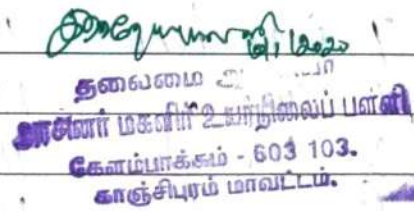 தலைமை
அரசினர் மகளிர் உயர்நிலைப் பள்ளி
கேளம்பாக்கம் - 603 103.
காஞ்சிபுரம் மாவட்டம்.